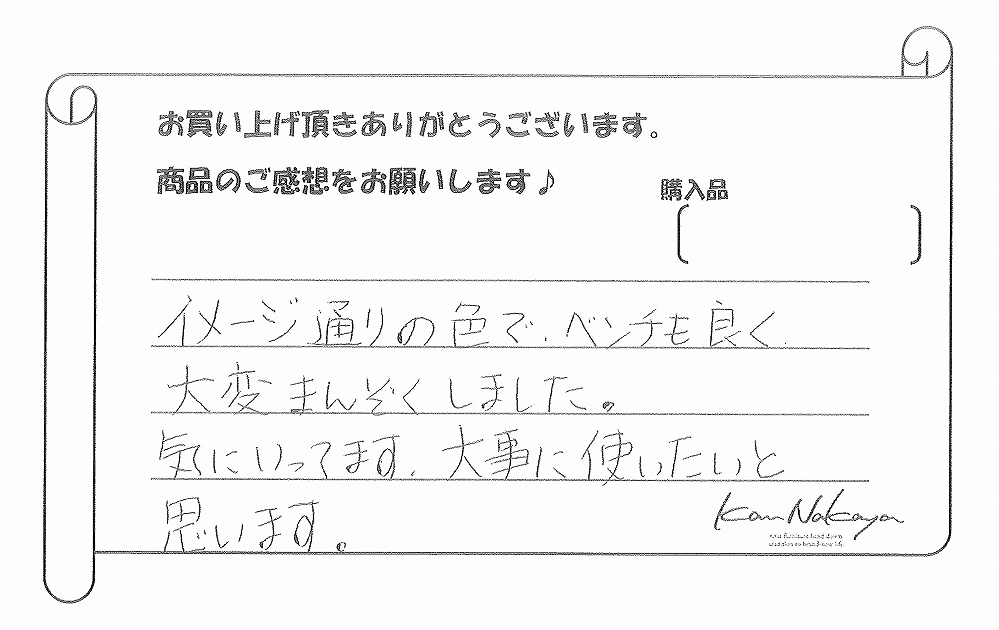 お買い上げ頂きありがとうございます。
商品のご感想をお願いします♪
購入品
イメージ通りの色で、ベンチも良く
大変まんぞくしました。
気にいってます。大事に使いたいと
思います。
Kan Nakaya